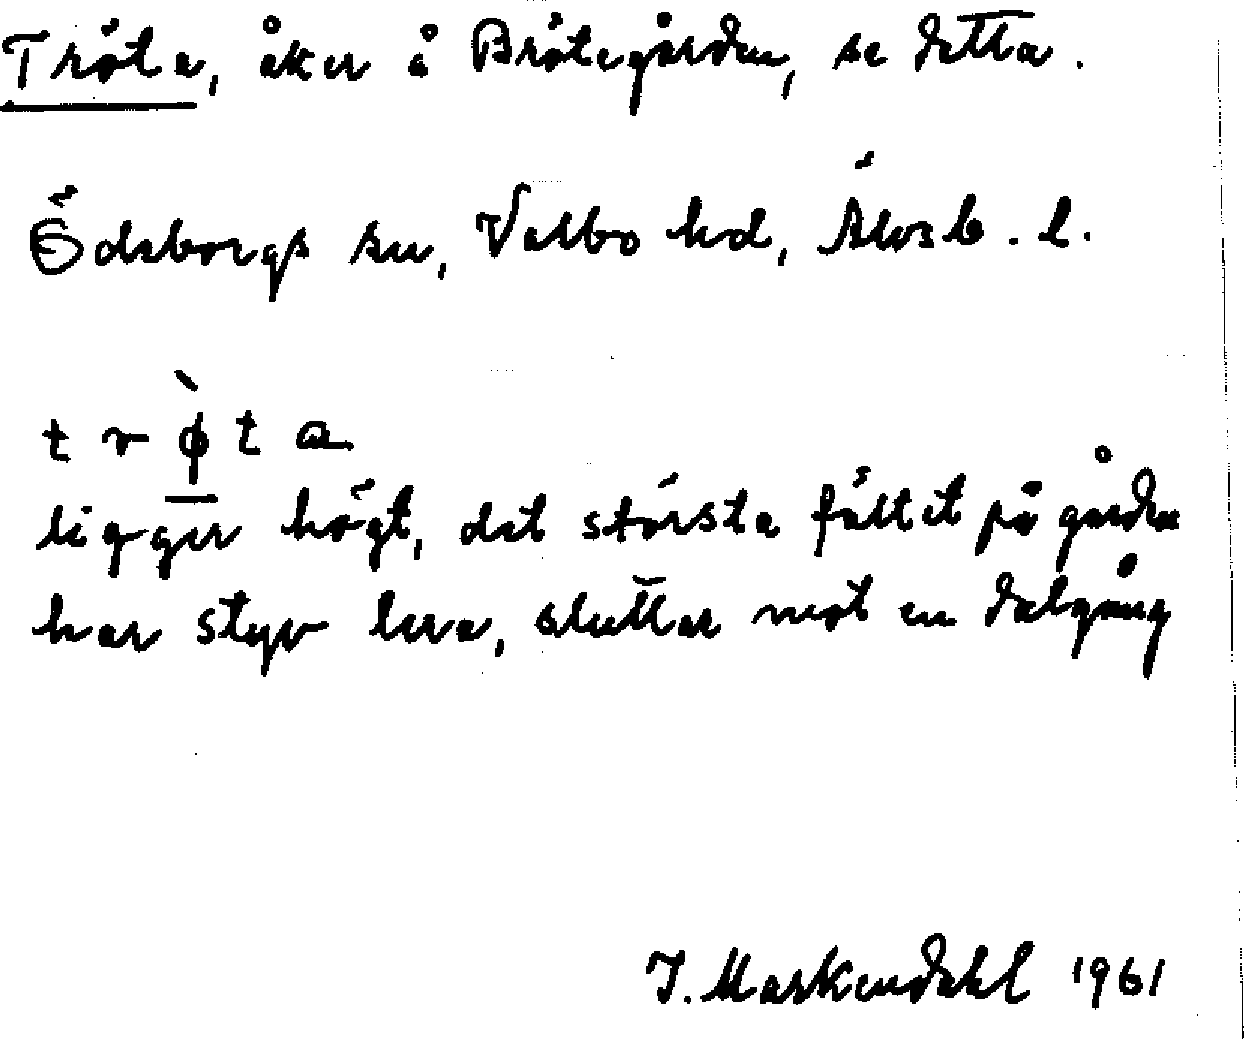 Tröta, åker å Brötegården, se detta.
Ödsborgs sn, Valbo hd, Älvsb. l.
t r ø̀ t a
ligger högt, det största fältet på gården
har styv lera, sluttar mot en dalgång
I. Markendahl 1961